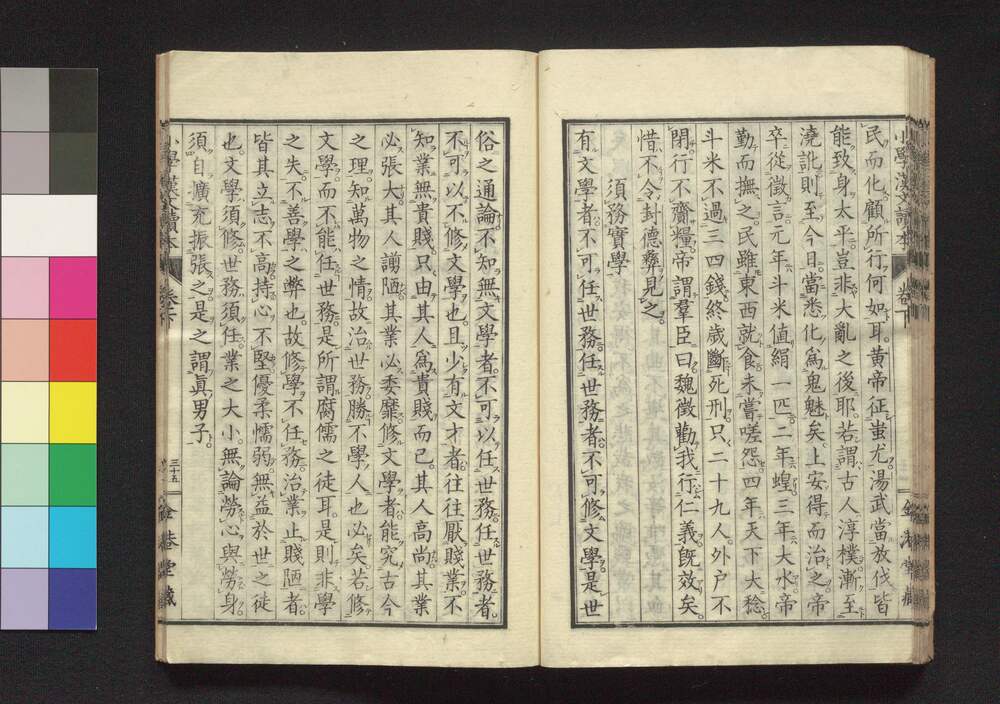 小學漢文讀本 卷下
民而化顧所行何如耳黃帝征蚩尤湯武當放伐皆
能致身太平豈非大亂之後耶若謂古人淳樸漸至
澆訛則至今日當悉化爲鬼魅矣上安得而治之帝
卒從徵言元年斗米值絹一匹二年蝗三年大水帝
勤而撫之民雖東西就食未嘗嗟怨四年天下大稔
斗米不過三四錢終歲斷死刑只二十九人外戶不
閉行不齎糧帝謂羣臣曰魏徵勸我行仁義旣效矣
惜不令封德彝見之
須務實學
有文學者不可任世務任世務者不可修文學是世
俗之通論不知無文學者不可以任世務任世務者
不可以不修文學也且少有文才者往往厭賤業不
知業無貴賤只由其人爲貴賤而已其人高尚其業
必張大其人謭陋其業必委靡修文學者能究古今
之理知萬物之情故治世務勝不學人也必矣若修
文學而不能任世務是所謂腐儒之徒耳是則非學
之失不善學之弊也故修學不任務治業止賤陋者
皆其立志不高持心不堅優柔懦弱無益於世之徒
也文學須修世務須任業之大小無論勞心與勞身
須自擴充振張之是之謂眞男子
小學漢文讀本 卷下 三十五